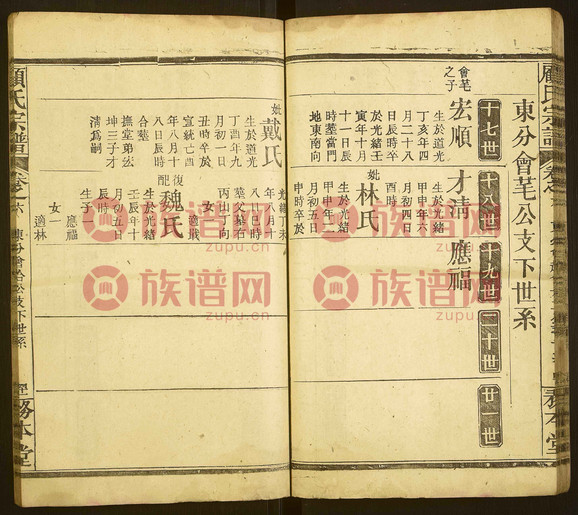 東分會芼公支下世系
十七世
十八世
十九世
二十世
廿一世
會芼
之子
宏順
生於道光
丁亥年四
月二十八
日辰時卒
於光緒壬
寅年十月
時葬當門
地東南向
妣戴氏
生於道光
丁酉年九
月初一日
丑時卒於
宣統己酉
年八月十
八日辰時
合葬
撫堂弟宏
坤三子才
清爲嗣
才清
生於光緒
甲申年
月初四日
辰時
妣林氏
生於光緒
甲申年二
月初五日
申時卒於
光緒
年八月十
八日
墓父墓右
丙山丁向
女一
適戢
復配
魏氏
生於光緒
年十
月初五日
辰時
生子
應福
女一
適林
應福
顧氏宗譜
卷之六
東分會哈公支下世系
務本堂
顧氏宗譜
務本堂
族谱网
zupu.cn
族谱网
zupu.cn
族谱网
zupu.cn
族谱网
zupu.cn